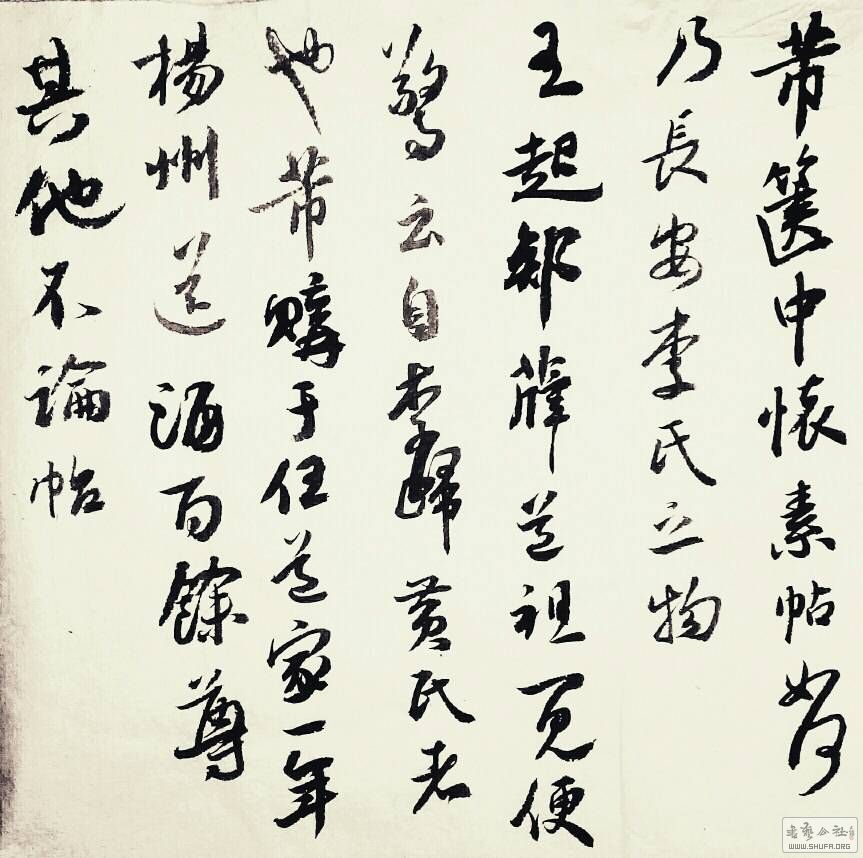 芾箧中懷素帖如何
乃長安李氏之物
王起郎薛道祖一見便
驚云自李歸黃氏者
也芾購于任道家一年
揚州送酒百餘尊
其他不論帖
書藝公社
WWW.SHUFA.ORG